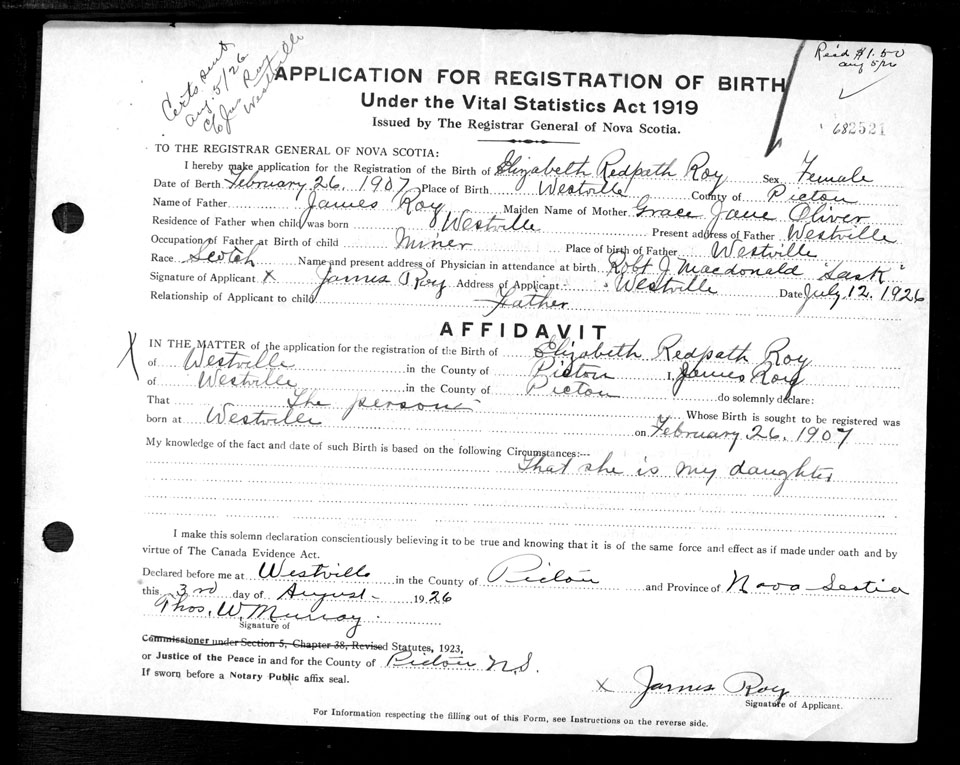 Certs. sent
Aug. 5/26
c/o Jas Roy
Westville
Rec'd $1.50
Aug 5/26
682521
APPLICATION FOR REGISTRATION OF BIRTH
Under the Vital Statistics Act 1919
Issued by The Registrar General of Nova Scotia.
TO THE REGISTRAR GENERAL OF NOVA SCOTIA:
I hereby make application for the Registration of the Birth of Elizabeth Redpath Roy Sex Female
Date of Berth February 26, 1907 Place of Birth Westville County of Picton
Name of Father James Roy Maiden Name of Mother Grace Jane Oliver
Residence of Father when child was born Westville Present address of Father Westville
Occupation of Father at Birth of child Miner Place of birth of Father Westville
Race Scotch Name and present address of Physician in attendance at birth Robt J Macdonald "Sask"
Signature of Applicant X James Roy Address of Applicant Westville Date July 12, 1926
Relationship of Applicant to child Father
AFFIDAVIT
X IN THE MATTER of the application for the registration of the Birth of Elizabeth Redpath Roy
of Westville in the County of Picton I, James Roy
of Westville in the County of Picton do solemnly declare:
That The person Whose Birth is sought to be registered was
born at Westville on February 26, 1907
My knowledge of the fact and date of such Birth is based on the following Circumstances:---
That she is my daughter
I make this solemn declaration conscientiously believing it to be true and knowing that it is of the same force and effect as if made under oath and by
virtue of The Canada Evidence Act.
Declared before me at Westville in the County of Picton and Province of Nova Scotia
this 3rd day of August 1926
Thos. W. Murray
Signature of
Commissioner under Section 5, Chapter 38, Revised Statutes, 1923,
or Justice of the Peace in and for the County of Picton N.S.
If sworn before a Notary Public affix seal.
X James Roy
Signature of Applicant.
For Information respecting the filling out of this Form, see Instructions on the reverse side.